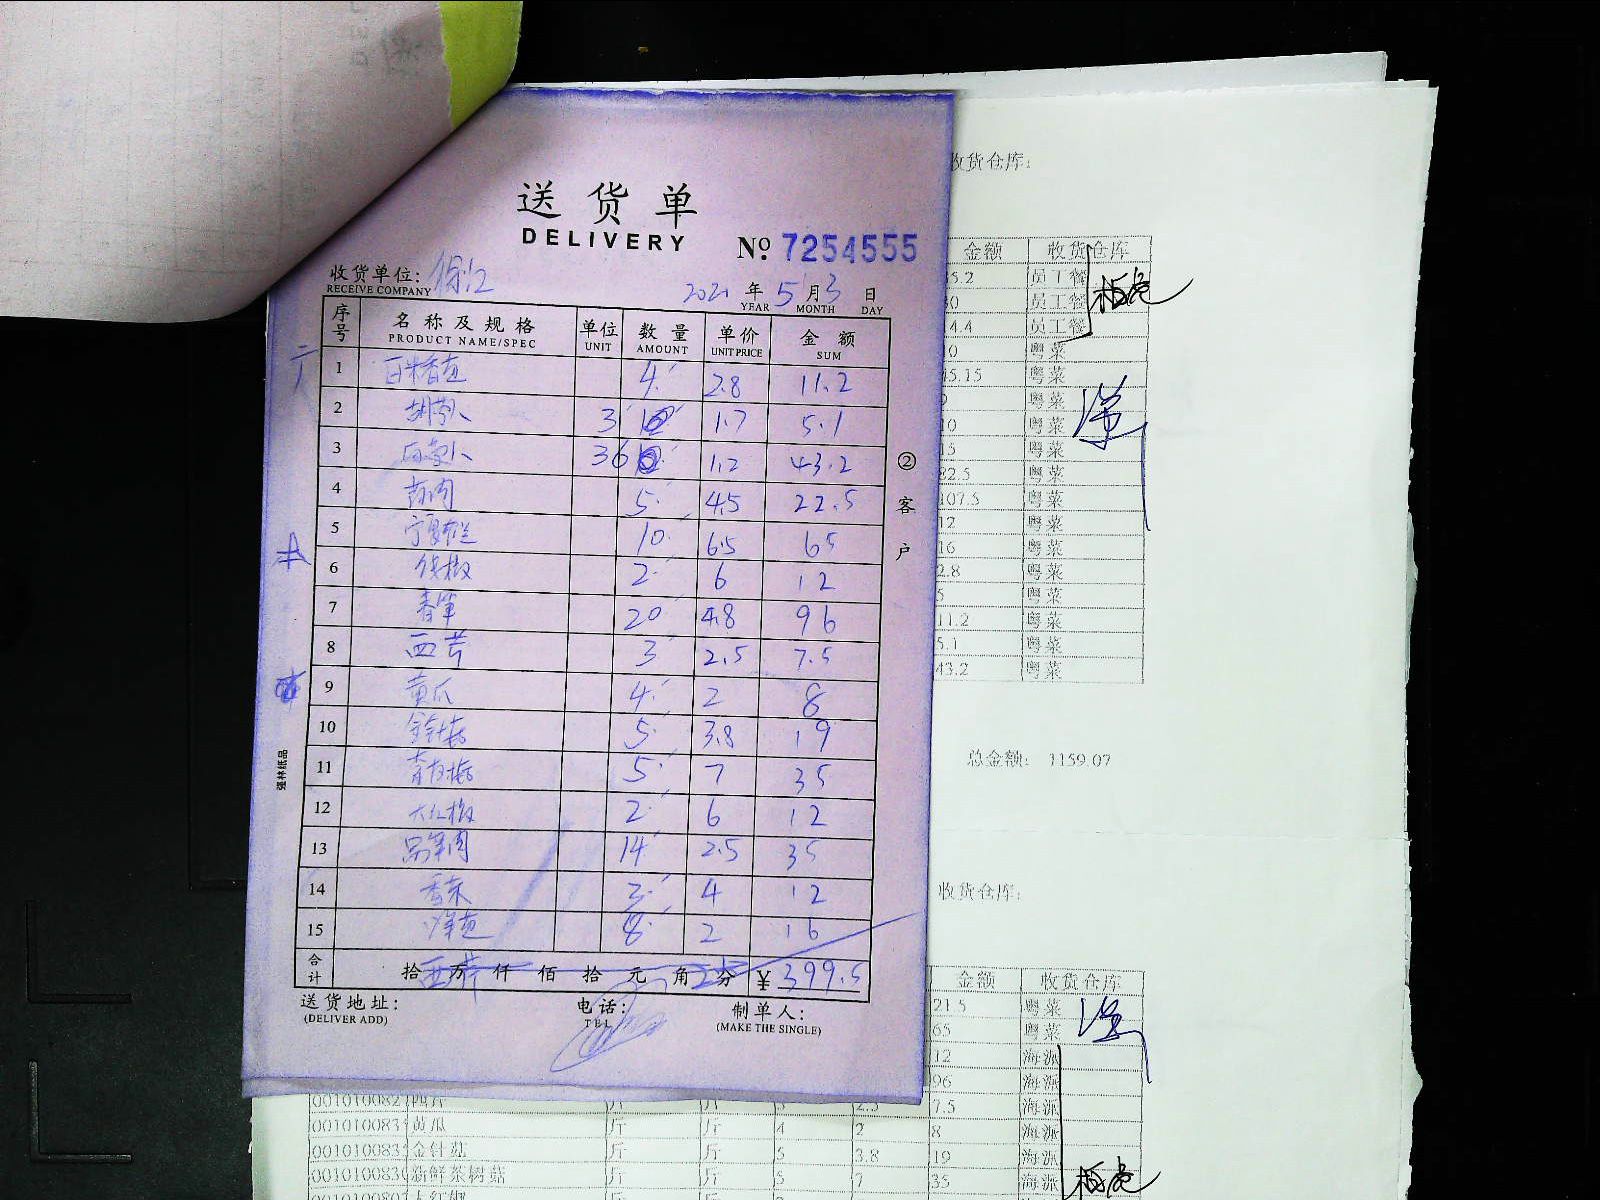 送货单
DELIVERY
№ 7254555
收货单位: 徐汇
RECEIVE COMPANY
2021 年 5 月 3 日
YEAR MONTH DAY
序号 名称及规格 单位 数量 单价 金额
PRODUCT NAME/SPEC UNIT AMOUNT UNIT PRICE SUM
1 4 2.8 11.2
2 胡萝卜 3 1.7 5.1
3 白萝卜 36 1.2 43.2
4 5 4.5 22.5
5 10 6.5 65
6 线椒 2 6 12
7 春笋 20 4.8 96
8 西芹 3 2.5 7.5
9 黄瓜 4 2 8
10 金针菇 5 3.8 19
11 5 7 35
12 大红椒 2 6 12
13 14 2.5 35
14 香菜 3 4 12
15 洋葱 8 2 16
合计 拾 万 仟 佰 拾 元 角 分 ¥ 399.5
送货地址: 电话: 制单人:
(DELIVER ADD) TEL (MAKE THE SINGLE)
②客户
强林纸品
收货仓库:
金额 收货仓库
5.2 员工餐
员工餐
4.4 员工餐
粤菜
45.15 粤菜
粤菜
10 粤菜
15 粤菜
82.5 粤菜
107.5 粤菜
12 粤菜
16 粤菜
2.8 粤菜
5 粤菜
11.2 粤菜
5.1 粤菜
43.2 粤菜
总金额: 1159.07
收货仓库:
金额 收货仓库
21.5 粤菜
65 粤菜
12 海派
96 海派
001010082 西芹 斤 斤 3 2.5 7.5 海派
001010083 黄瓜 斤 斤 4 2 8 海派
001010083 金针菇 斤 斤 5 3.8 19 海派
001010083 新鲜茶树菇 斤 斤 5 7 35 海派
大红椒